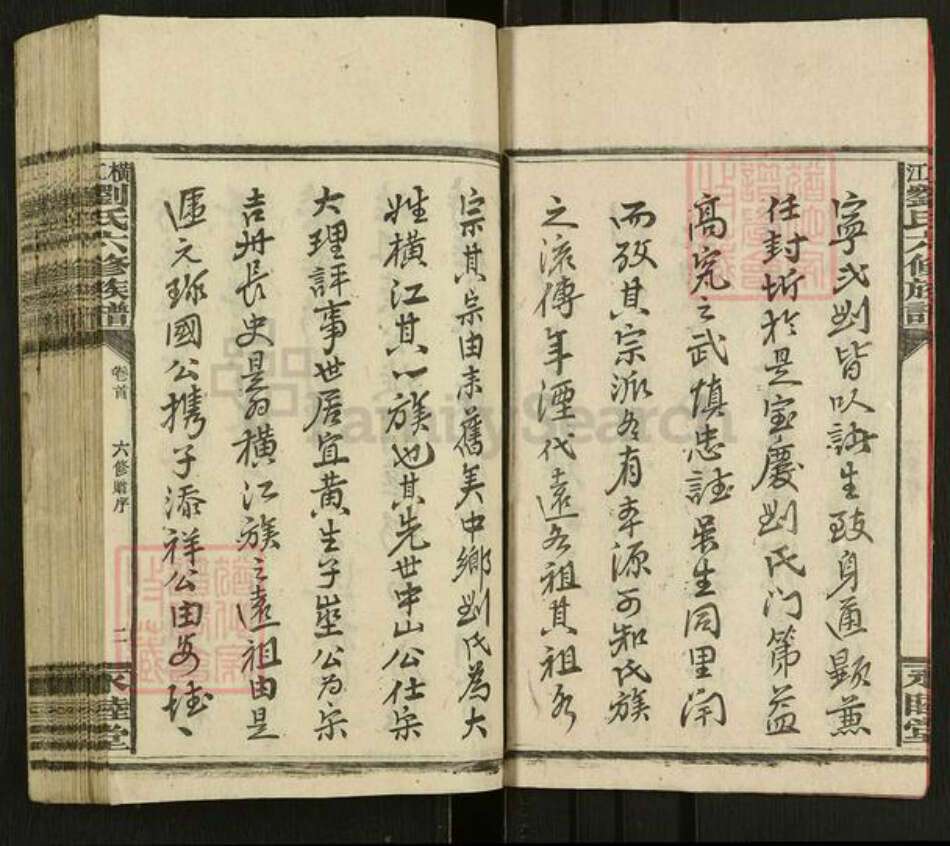 江劉氏六修族譜
永睦堂
寧弐劉皆以諸生致身通顯兼
任封圻於是宝慶劉氏门第益
高究之武慎忠誠吴生同里闬
而攷其宗派各有本源可知氏族
之流傳年湮代遠各祖其祖各
宗其宗由来舊矣中鄉劉氏為大
姓橫江其一族也其先世申山公仕宋
大理評事世居宜黄生子崟公为宗
吉州長史是为橫江族之遠祖由是
遞元珎國公携子添祥公由安
橫江劉氏六修族譜
卷首
六修贈序
二
永睦堂
FamilySearch